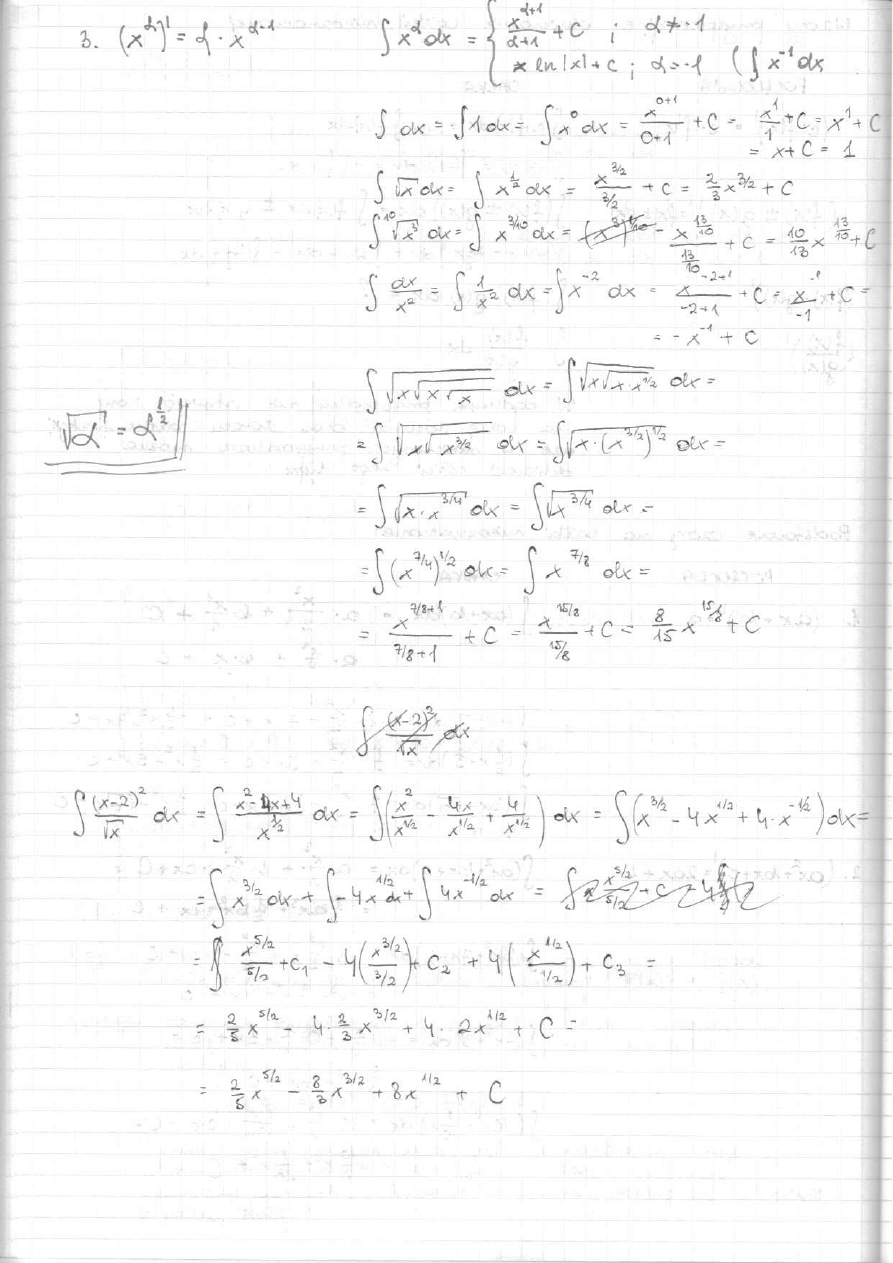 3. (x^α)' = α · x^(α-1)    ∫ x^α dx = { x^(α+1)/(α+1) + C ; α ≠ -1
ln|x| + C ; α = -1 (∫ x^(-1) dx
∫ dx = ∫ 1 dx = ∫ x^0 dx = x^(0+1)/(0+1) + C = x^1/1 + C = x^1 + C
= x + C = 1
∫ √x dx = ∫ x^(1/2) dx = x^(3/2)/(3/2) + C = 2/3 x^(3/2) + C
∫ ¹⁰√(x^3) dx = ∫ x^(3/10) dx = x^(13/10)/(13/10) + C = 10/13 x^(13/10) + C
∫ dx/x^2 = ∫ 1/x^2 dx = ∫ x^(-2) dx = x^(-2+1)/(-2+1) + C = x^(-1)/(-1) + C =
= -x^(-1) + C
∫ √(x√(x√(x√x))) dx = ∫ √(x√(x·x^(1/2))) dx =
√α = α^(1/2)
= ∫ √(x√(x^(3/2))) dx = ∫ √(x·(x^(3/2))^(1/2)) dx =
= ∫ √(x·x^(3/4)) dx = ∫ √(x^(3/4)) dx =
= ∫ (x^(7/4))^(1/2) dx = ∫ x^(7/8) dx =
= x^(7/8+1)/(7/8+1) + C = x^(15/8)/(15/8) + C = 8/15 x^(15/8) + C
∫ (x-2)^2/√x dx
∫ (x-2)^2/√x dx = ∫ (x^2-4x+4)/x^(1/2) dx = ∫ (x^2/x^(1/2) - 4x/x^(1/2) + 4/x^(1/2)) dx = ∫ (x^(3/2) - 4x^(1/2) + 4·x^(-1/2)) dx =
= ∫ x^(3/2) dx + ∫ -4x^(1/2) dx + ∫ 4x^(-1/2) dx =
= x^(5/2)/(5/2) + C₁ - 4(x^(3/2)/(3/2)) + C₂ + 4(x^(1/2)/(1/2)) + C₃ =
= 2/5 x^(5/2) - 4·2/3 x^(3/2) + 4·2x^(1/2) + C =
= 2/5 x^(5/2) - 8/3 x^(3/2) + 8x^(1/2) + C